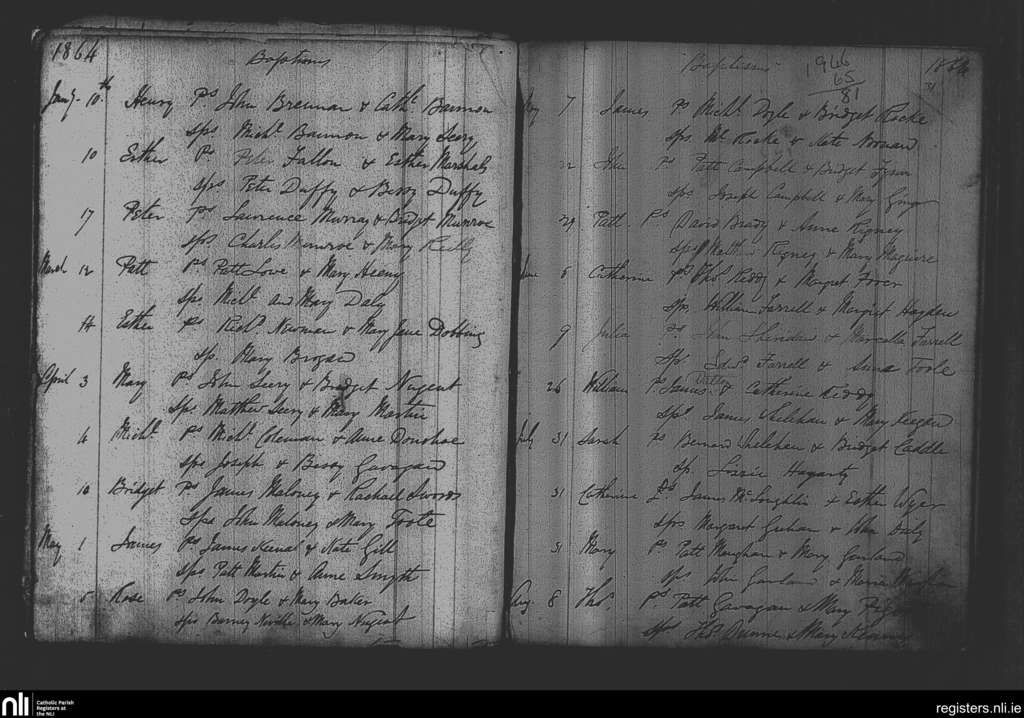 1864
Baptisms
Jany. 10th Henry Ps John Brennan & Cathe. Bannon
sps Michl. Bannon & Mary Seery
10 Esther Ps Peter Fallon & Esther Marshals
sps Peter Duffy & Bessy Duffy
17 Peter Ps Lawrence Murray & Bridget Munroe
sps. Charles Munroe & Mary Reilly
March 12 Patt Ps Patt Love & Mary Heeny
sps Michl. and Mary Daly
14 Esther Ps Richd. Newman & Mary Jane Dobbing
sp. Mary Brogan
April 3 Mary Ps John Seery & Bridget Nugent
sps Matthew Seery & Mary Martin
4 Michl. Ps Michl. Coleman & Anne Donohoe
sps Joseph & Bessy Gavagan
10 Bridget Ps James Maloney & Rachael Swords
sps John Maloney & Mary Toole
May 1 James Ps James & Kate Gill
sps Patt Martin & Anne Smyth
5 Rose Ps John Doyle & Mary Baker
sps. Barney Neville & Mary Nugent
Baptisms
1946
65
81
1864
May 7 James Ps Michl. Doyle & Bridget Rocke
sps. Rocke & Kate Noonan
22 John Ps Patt Campbell & Bridget
sps Joseph Campbell & Mary
29 Patt Ps David Brady & Anne Rigney
sps Matth. Rigney & Mary Maguire
June 5 Catherine Ps Thos. Reddy & Margret
sps. William Farrell & Margret Hayden
9 Julia Ps John Sheridan & Marcella Farrell
sps. Edwd. Farrell & Anna Toole
26 William Ps James Dalton & Catherine Reddy
sps. James & Mary Keegan
July 31 Sarah Ps Bernard & Bridget Caddle
sp. Lizzie Hagarty
31 Catherine Ps James McLoghlin & Esther
sps Margaret & John Daly
31 Mary Ps Patt Maughan & Mary Garland
sps. John Garland & Maria
Aug. 8 Thos. Ps. Patt Gavagan & Mary
sps Thos. Dunne & Mary
nli Catholic Parish
Registers at
the NLI
registers.nli.ie